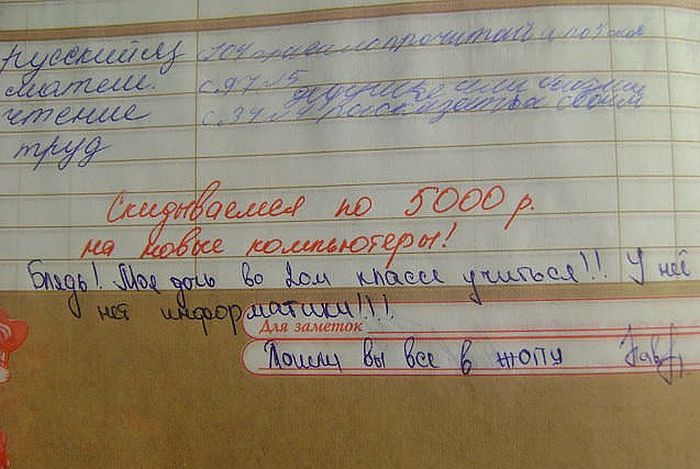 русский яз
матем. с.97 №5
чтение с.34 №4 рассказать о своём
труд
Скидываемся по 5000 р.
на новые компьютеры!
Блядь! Моя дочь во 2ом классе учиться!!! У неё
нет информатики!!!
Для заметок
Пошли вы все в жопу